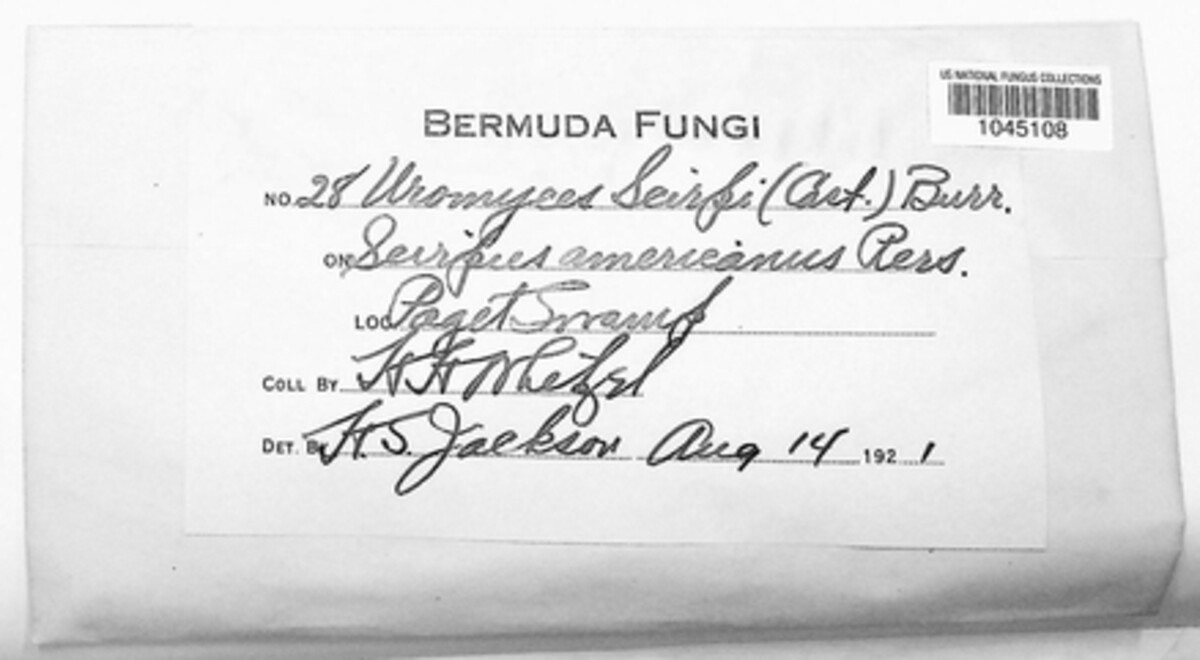 US NATIONAL FUNGUS COLLECTIONS
1045108
BERMUDA FUNGI
NO. 28 Uromyces Scirpi (Cast.) Burr.
ON Scirpus americanus Pers.
LOC Paget Swamp
COLL BY H H Whetzel
DET. BY H.S. Jackson Aug 14 1921